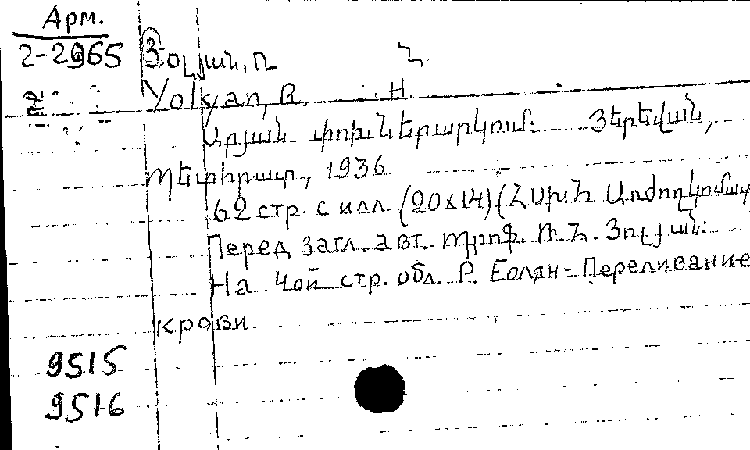 Арм.
2-2965 Յոլյան, Ռ. Հ.
Yolyan, R. H.
Արյան փոխներարկում: Յերեվան,
Պետհրատ, 1936
62 стр. с илл. (20x14) (ՀՍԽՀ Առժողկոմատ
Перед загл. авт. Պրոֆ. Ռ.Հ. Յոլյան:
На 4ой стр. обл. Р. Еолян-Переливание
крови
9515
9516